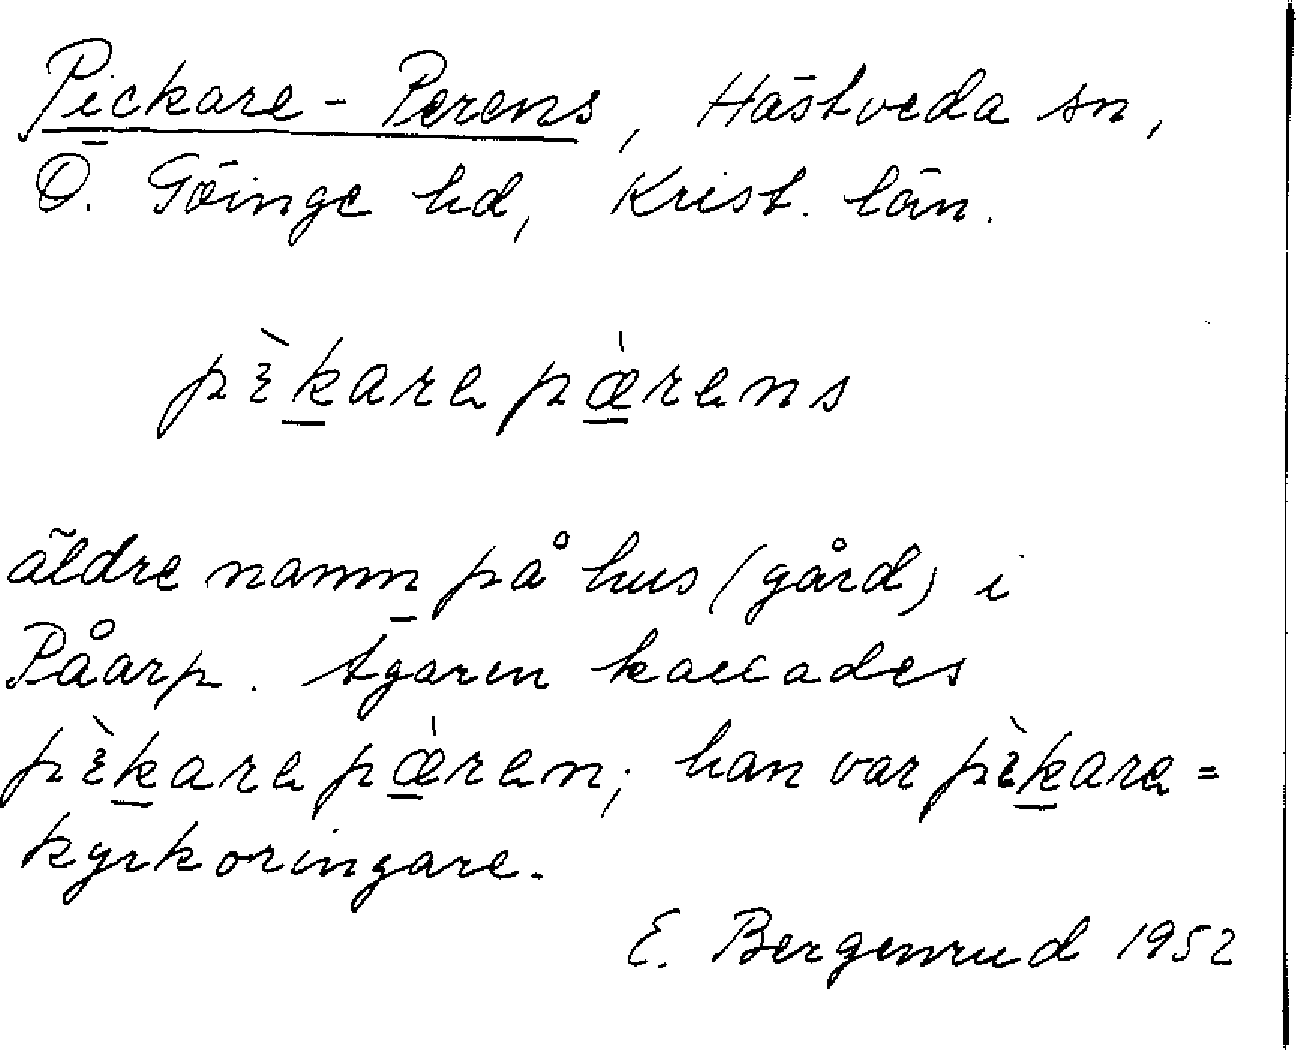 Pickare-Perens, Hästveda sn,
Ö. Göinge hd, Krist. län.
pìkare pǽrens
äldre namn på hus (gård) i
Påarp. Ägaren kallades
pìkare pǽren; han var pìkare =
kyrkoringare.
E. Bergenrud 1952